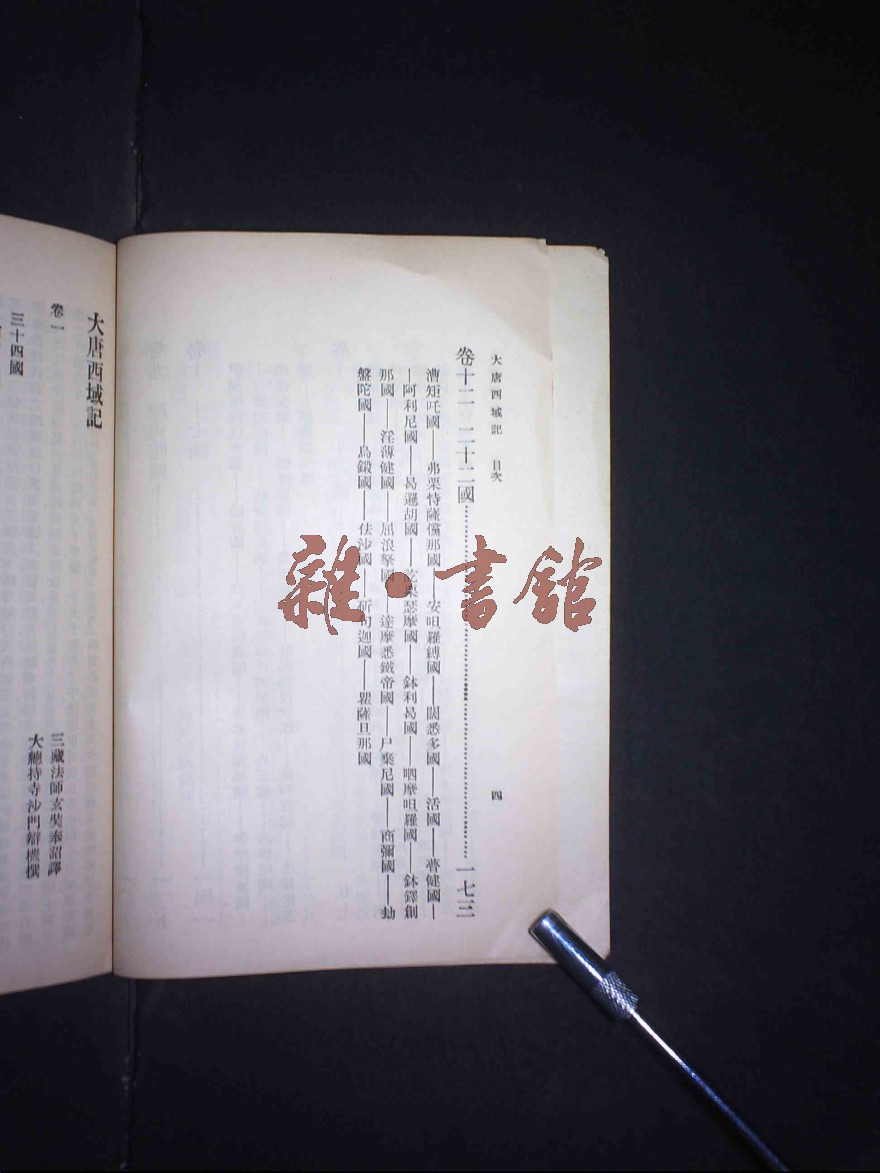 大唐西域記 目次
四
卷十二 二十二國……一七三
漕矩吒國——弗栗恃薩儻那國——安呾羅縛國——闊悉多國——活國——瞢健國—
—阿利尼國——曷邏胡國——訖栗瑟摩國——鉢利曷國——呬摩呾羅國——鉢鐸創
那國——淫薄健國——屈浪拏國——達摩悉鐵帝國——尸棄尼國——商彌國——劫
盤陀國——烏鎩國——佉沙國——斫句迦國——瞿薩旦那國
大唐西域記
三藏法師玄奘奉詔譯
大總持寺沙門辯機撰
卷一
三十四國
雜·書館